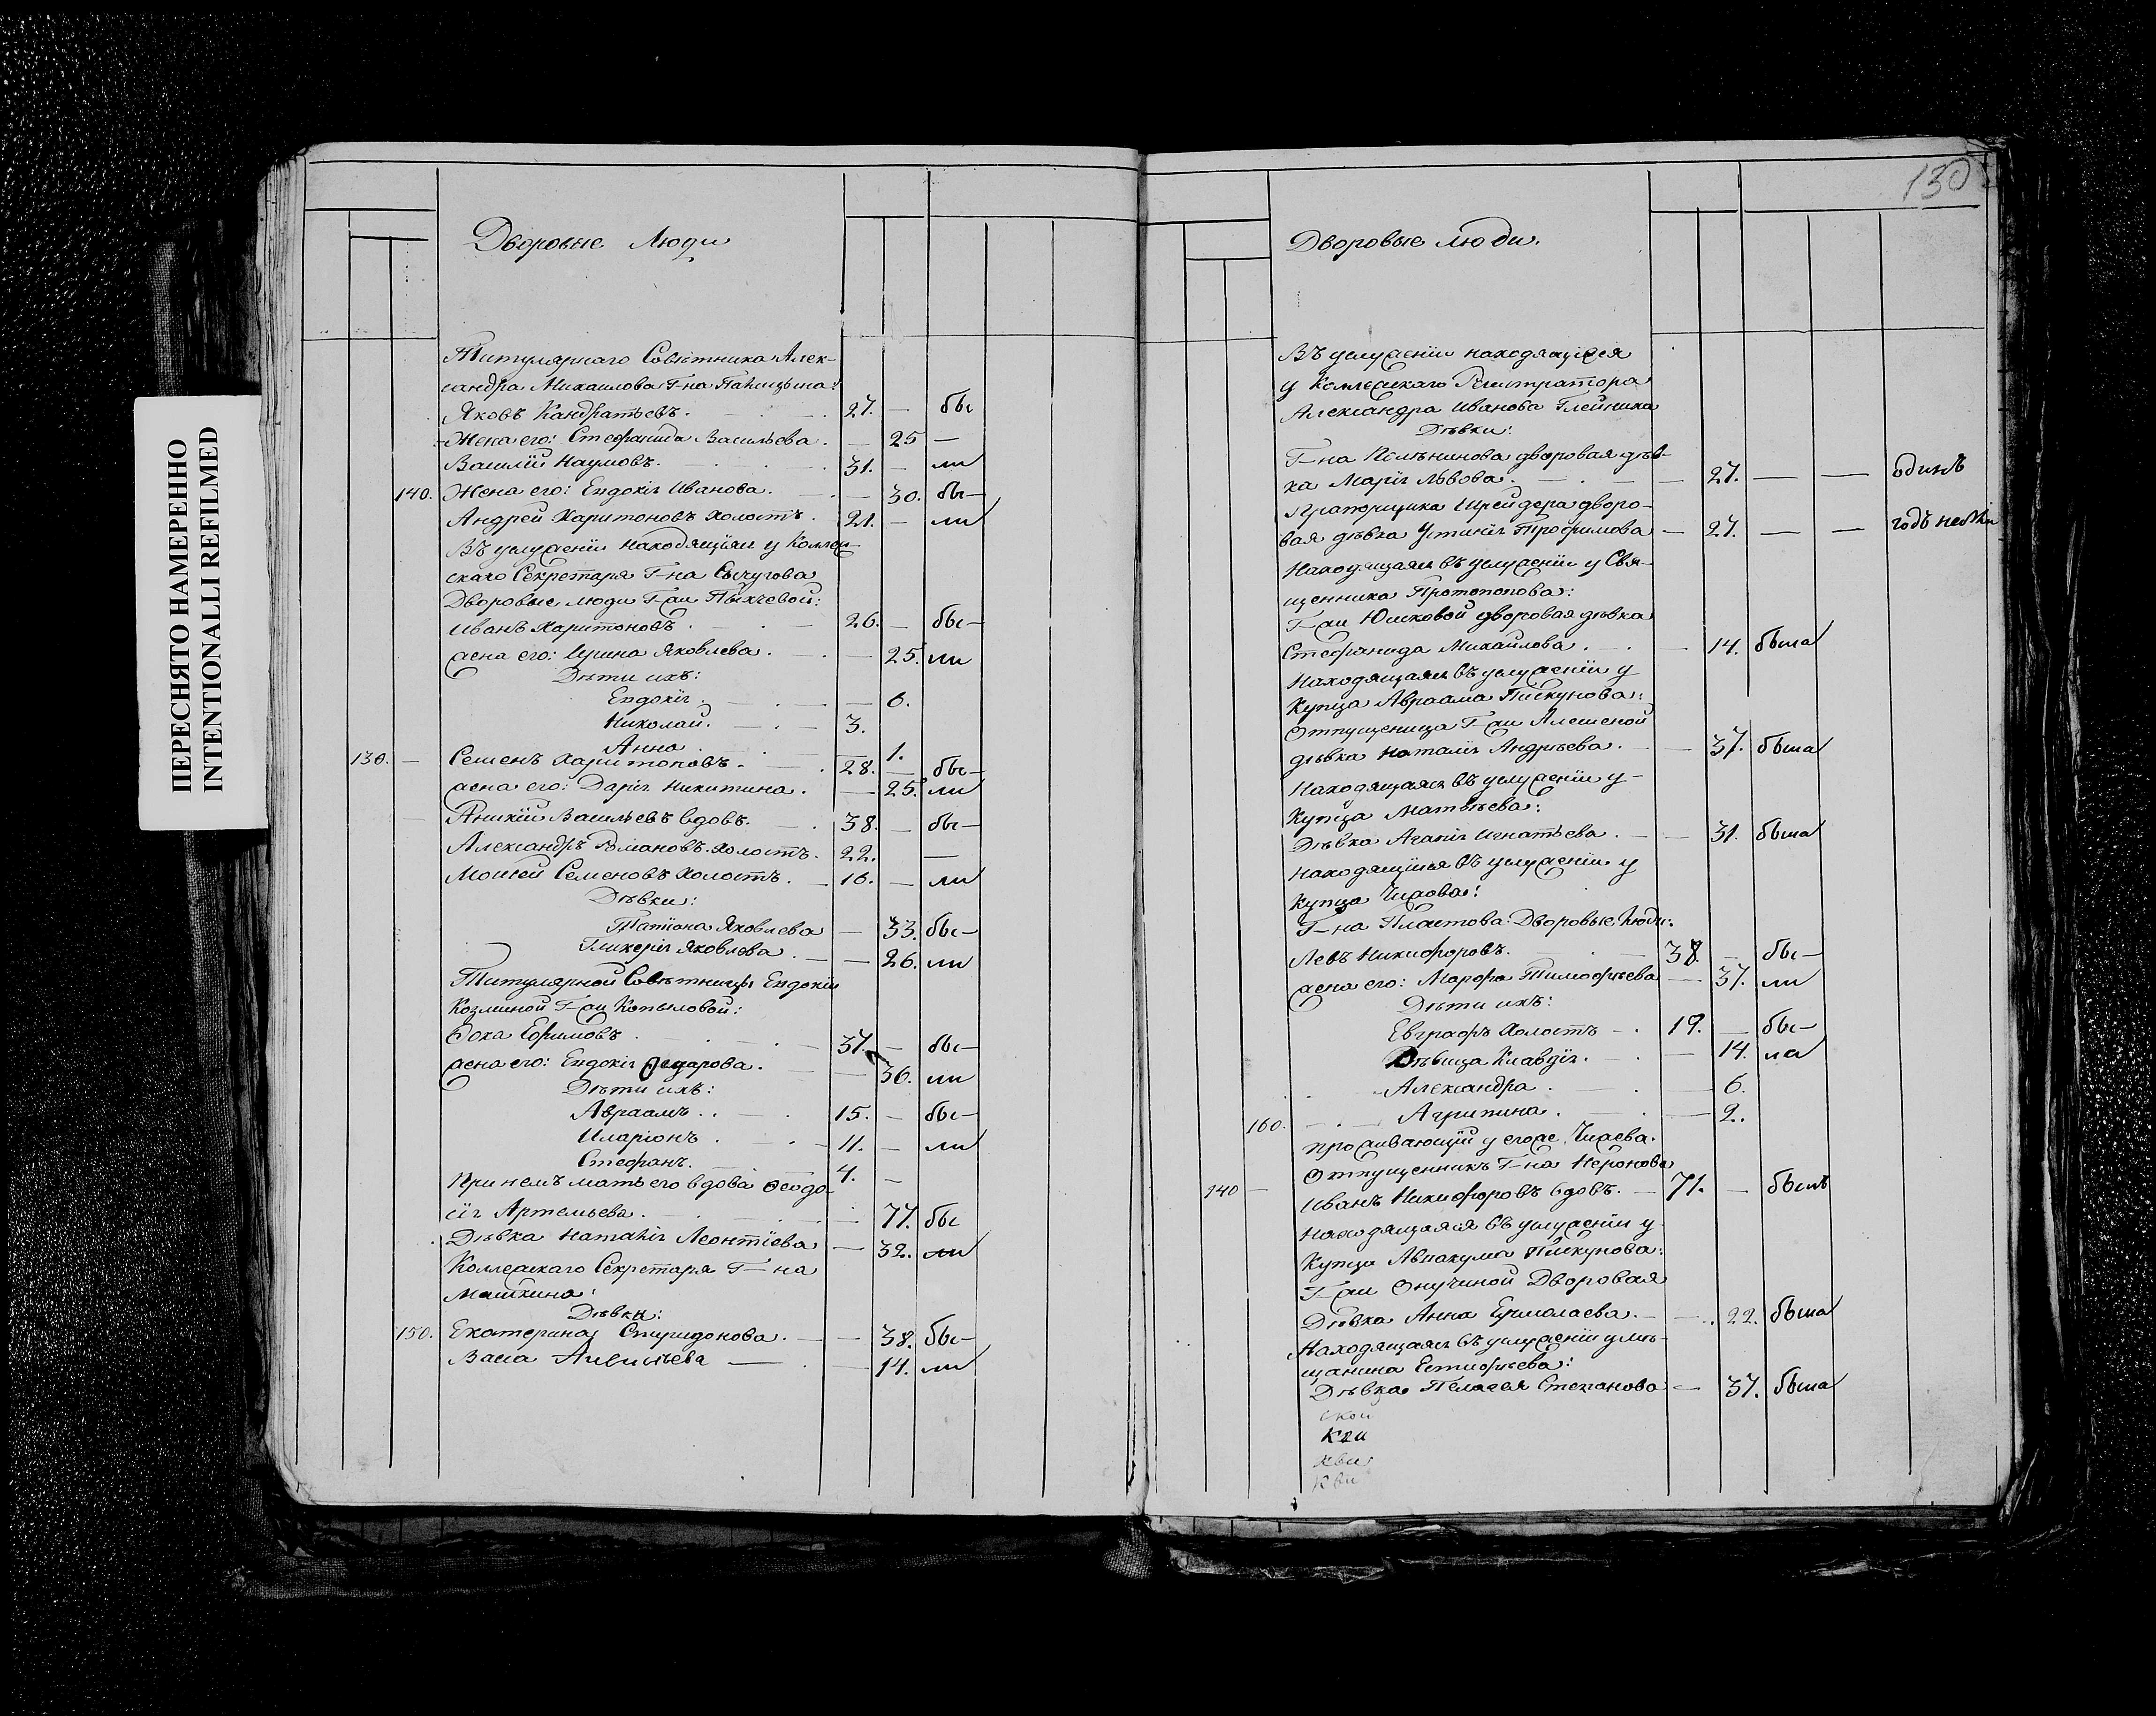 ПЕРЕСНЯТО НАМЕРЕННО
INTENTIONALLI REFILMED
Дворовые Люди
Титулярнаго Совѣтника Алек-
сандра Михаилова Г-на
Яковъ Кандратьевъ. 27. — бы
Жена его: Стефанида Васильева. — 25 —
Василій Наумовъ. 31. — ли
140. Жена его: Евдокія Иванова. — 30. бы—
Андрей Харитоновъ холостъ. 21. — ли
Въ услуженіи находящіяся у Коллеж-
скаго Секретаря Г-на Сычугова
Дворовые люди Г-жи Пыхчевой:
Иванъ Харитоновъ. 26. — бы—
жена его: Ирина Яковлева. — 25. ли
Дѣти ихъ:
Евдокія. — 6.
Николай. 3.
Анна. — 1.
130. — Семенъ Харитоновъ. 28. — бы—
жена его: Дарія Никитина. — 25. ли
Аникій Васильевъ вдовъ. 38. — бы—
Александръ Романовъ холостъ. 22. —
Моисей Семеновъ холостъ. 16. — ли
Дѣвки:
Татіана Яковлева — 33. бы—
Гликерія Яковлева. — 26. ли
Титулярной Совѣтницы Евдокіи
Козминой Г-жи Копыловой:
Фока Ефимовъ. 37. — бы—
жена его: Евдокія Ѳедорова. — 36. ли
Дѣти ихъ:
Авраамъ. 15. — бы—
Иларіонъ. 11. — ли
Стефанъ. 4. —
При немъ мать его вдова Ѳеодо-
ія Артемьева. — 77. бы
Дѣвка Наталія Леонтіева — 32. ли
Коллежскаго Секретаря Г-на
Машкина:
Дѣвки:
150. Екатерина Спиридонова. — 38. бы—
Васса — 14. ли
130
Дворовые люди.
Въ услуженіи находящіяся
у Коллежскаго Регистратора
Александра Иванова Глейника
Дѣвки:
Г-на дворовая дѣв-
ка Марія Львова. — 27. — — одинъ
Прапорщика Шрейдера дворо-
вая дѣвка Устинія Трофимова — 27. — — годъ небыли
Находящаяся въ услуженіи у Свя-
щенника Протопопова:
Г-жи Юшковой дворовая дѣвка
Стефанида Михайлова. — 14. была
Находящаяся въ услуженіи у
Купца Авраама Пискунова:
Отпущеница Г-жи
дѣвка Наталія Андрѣева. — 37. была
Находящаяся въ услуженіи у
Купца Матвѣева:
Дѣвка Агапія Игнатьева. — 31. была
Находящіися въ услуженіи у
Купца Чижова:
Г-на Платова: Дворовые Люди:
Левъ Никифоровъ. 38 — бы—
жена его: Марфа Тимофѣева — 37. ли
Дѣти ихъ:
Евграфъ холостъ — 19. — бы—
Дѣвица Клавдія. — 14. ла
Александра. — 6.
160. Агрипина. — 2.
проживающій у егоже Чижова.
Отпущенникъ Г-на Неронова
140 — Иванъ Никифоровъ вдовъ. — 71. — былъ
Находящаяся въ услуженіи у
Купца Аввакума Пискунова:
Г-жи Онучиной Дворовая
Дѣвка Анна Ермолаева. — 22. была
Находящаяся въ услуженіи у мѣ-
щанина Евтифѣева:
Дѣвка Пелагея Степанова — 37. была